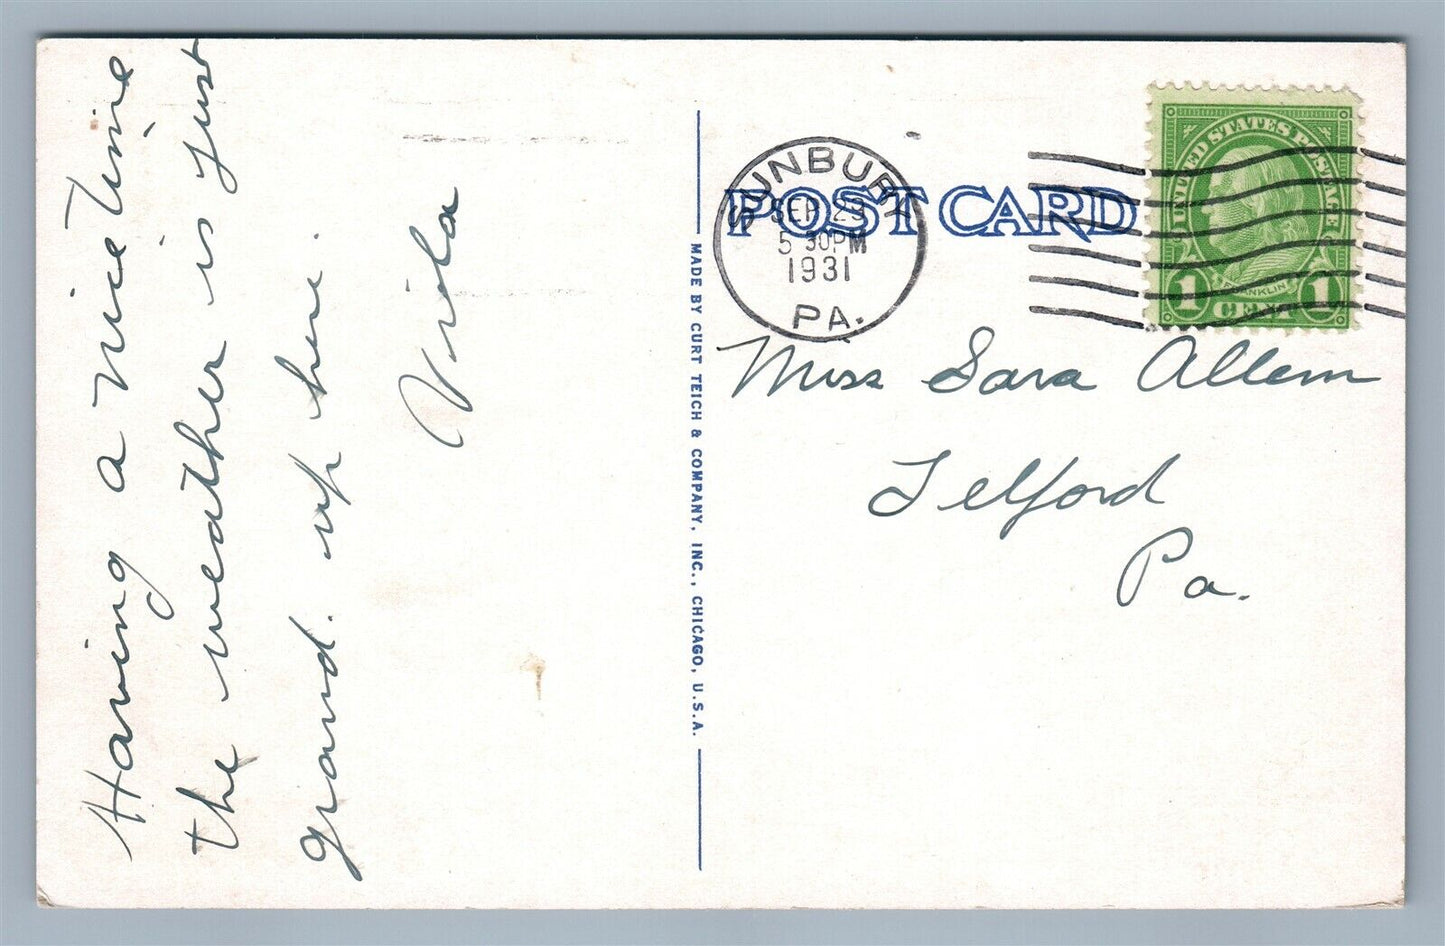 Having a nice time
the weather is just
grand. up here.
Viola
POST CARD
SUNBURY
SEP 29
5 30PM
1931
PA.
UNITED STATES POSTAGE
FRANKLIN
1 CENT 1
Miss Sara Allem
Telford
Pa.
MADE BY CURT TEICH & COMPANY, INC., CHICAGO, U.S.A.